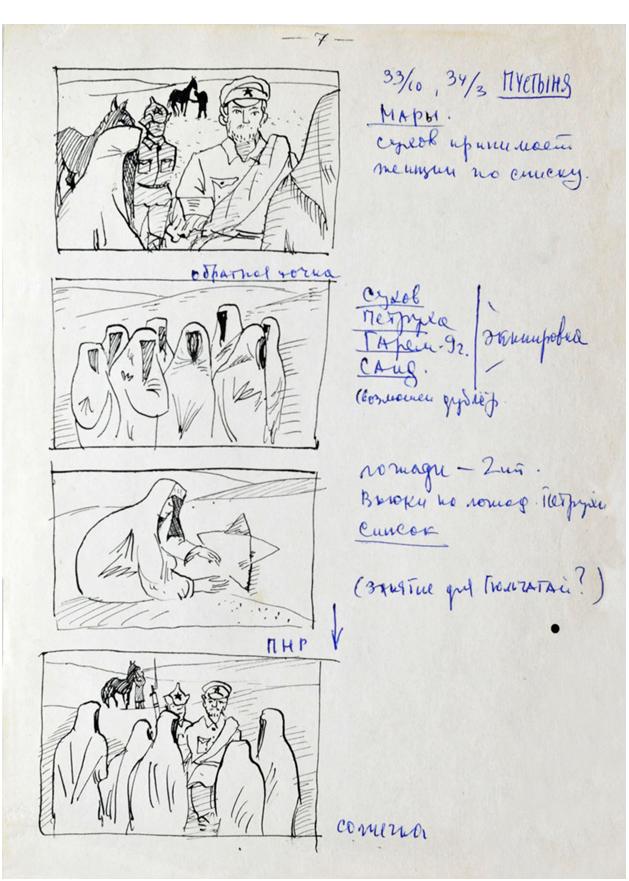 — 7 —
33/10, 34/3 ПУСТЫНЯ
МАРЫ.
Сухов принимает
женщин по списку.
обратная точка
Сухов
Петруха
Гарем - 9ч.
САИД.
экипировка
(возможен дублёр
лошади — 2шт.
Вьюки на лошад. Петрухи
Список
(Занятие для Гюльчатай?)
ПНР